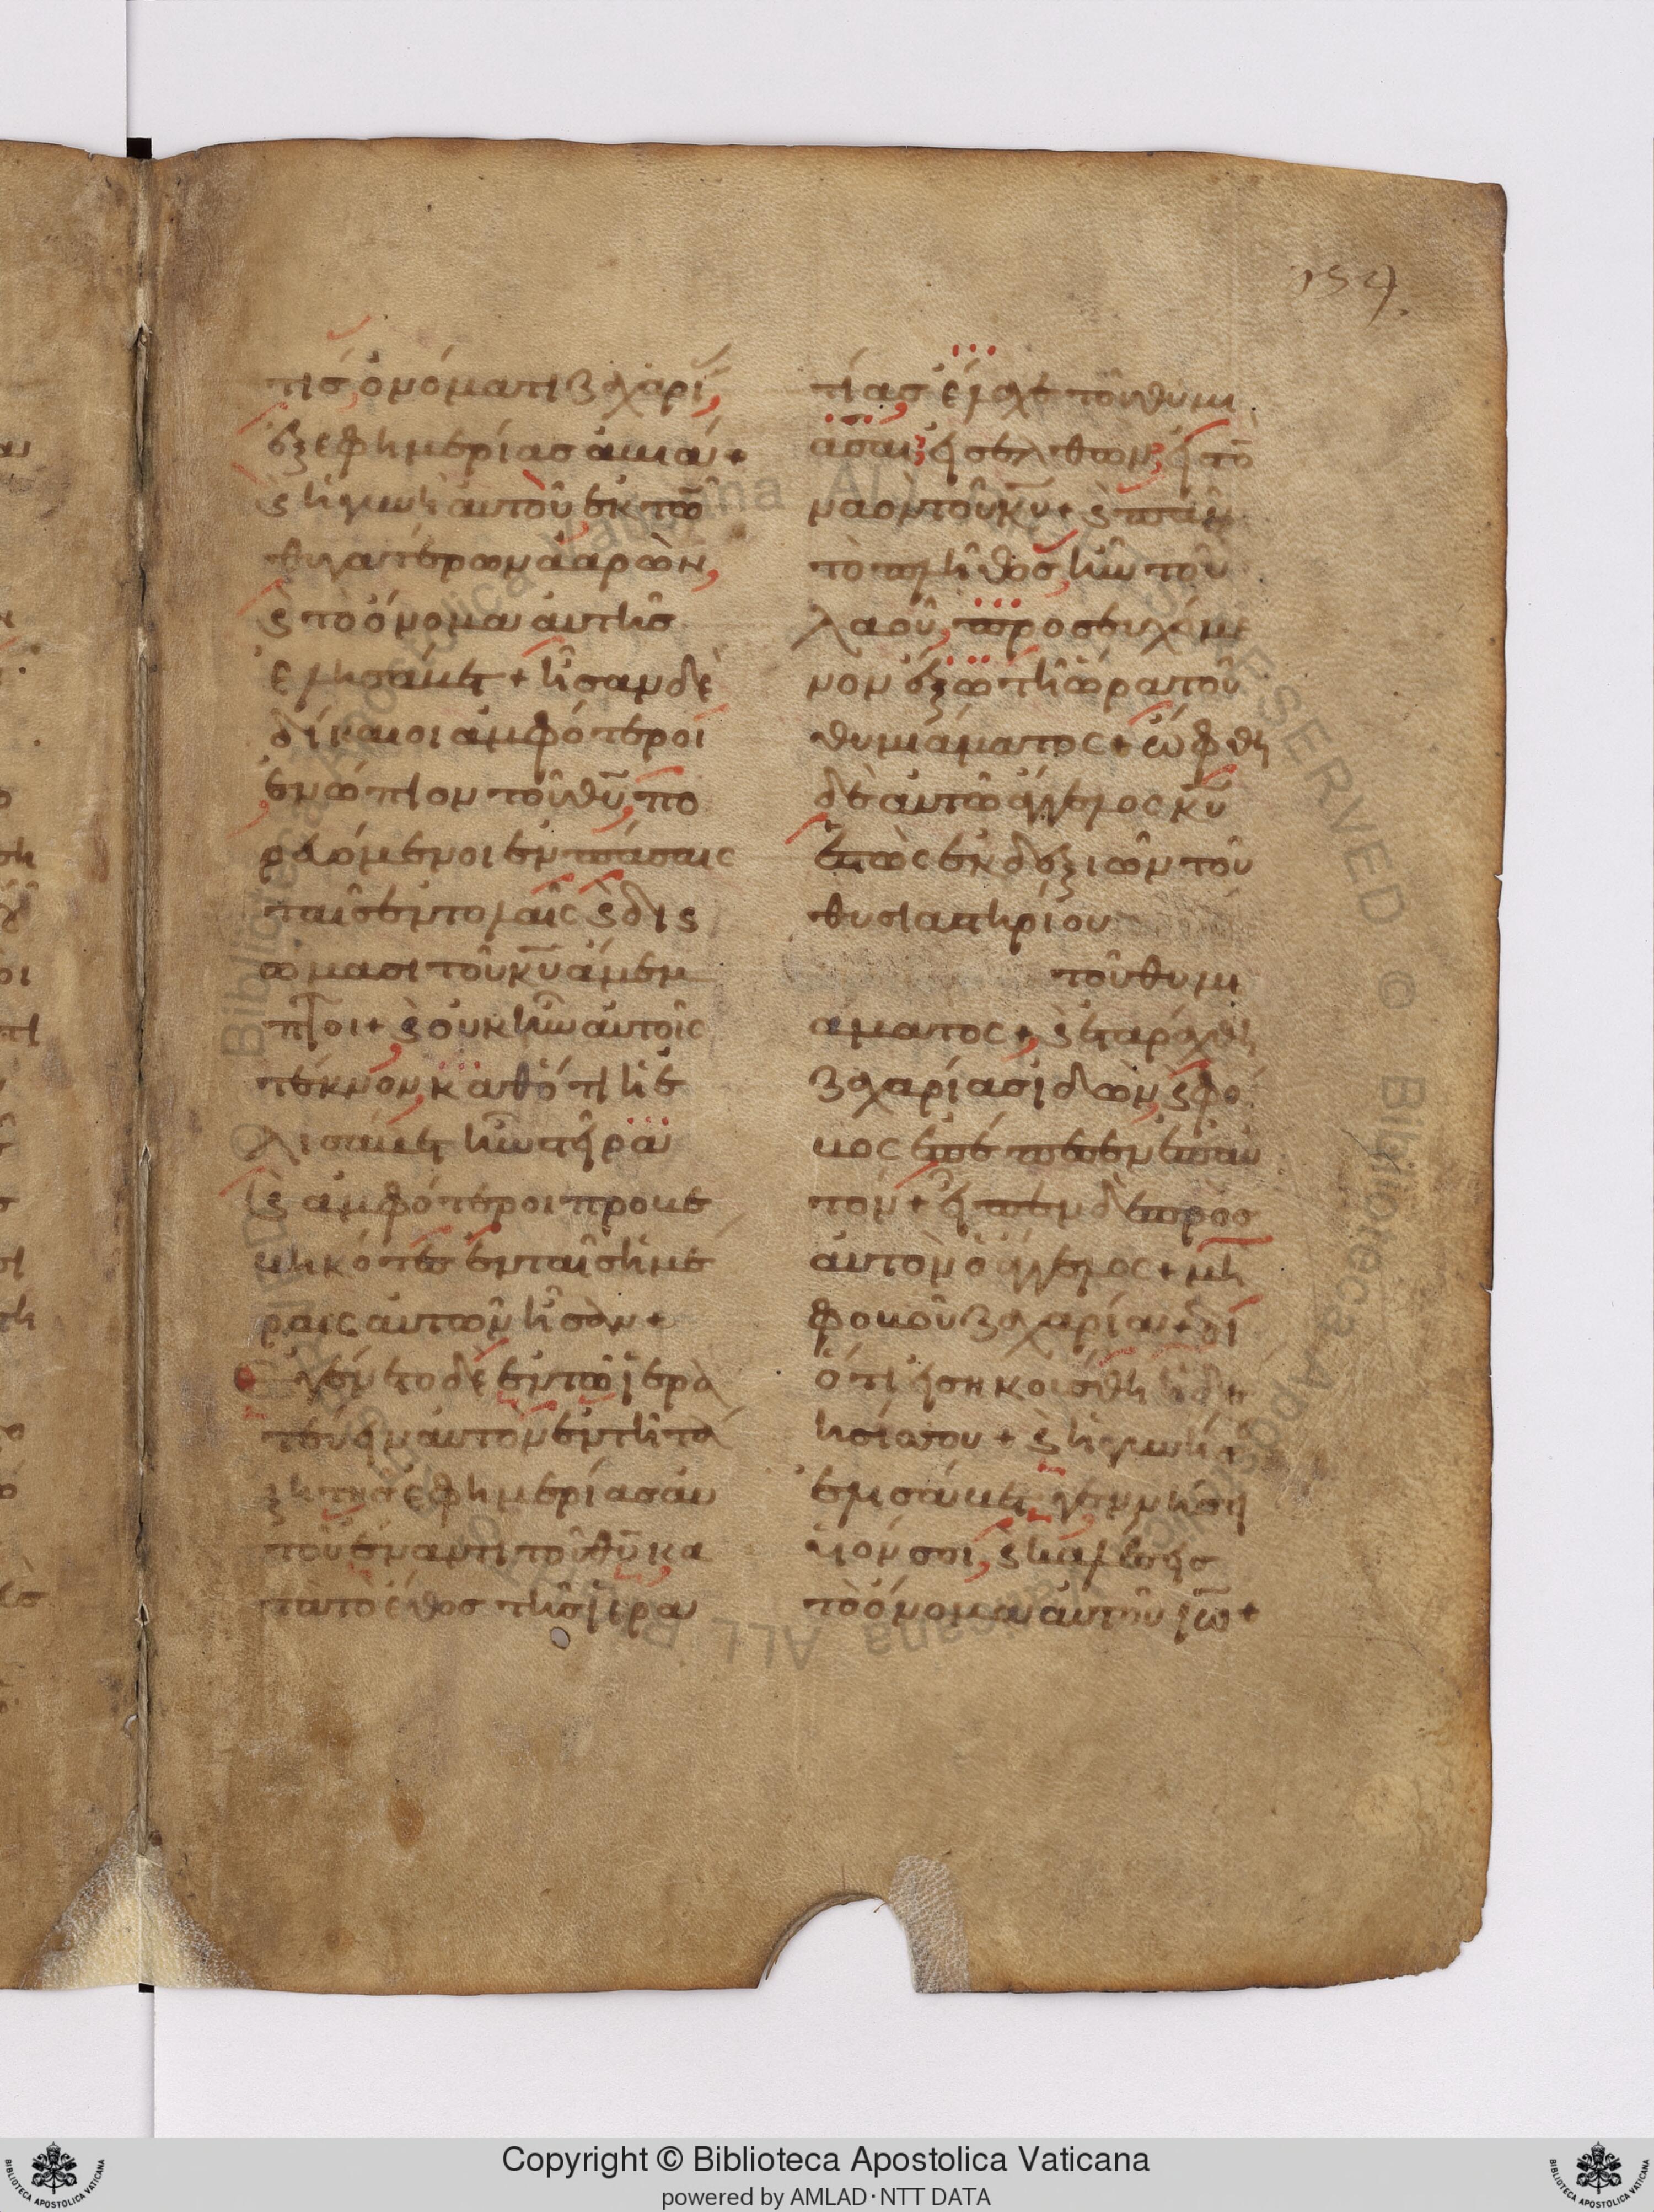 154.
τισ ὀνόματι ζαχαρί
ἐξ ἐφημερίασ ἀμιά +
ϛ ἡ γυνὴ αὐτοῦ ἐκ τῶ
θυγατέρων ἀαρὼν,
ϛ τὸ ὄνομα αὐτῆσ
ἐλησάβετ + ἦσαν δὲ
δίκαιοι ἀμφότεροι
ἐνώπιον τοῦ θῦ, πο
ρευόμενοι ἐν πάσαις
ταῖσ ἐντολαῖς ϛ δις
ώμασι τοῦ κῦ ἄμεμ
πτοι + ϛ οὐκ ἦν αὐτοῖς
τέκνον, καθότι ἡ ἐ
λισάβετ ἦν στῆρα
ϛ ἀμφότεροι προβε
βηκότες ἐν ταῖσ ἡμέ
ραις αὐτῶν ἦσαν +
ἐγένετο δὲ ἐν τῶ ἱερα
τεύειν αὐτὸν ἐν τῆ τά
ξη τησ ἐφημερίασ αὐ
τοῦ ἔναντι τοῦ θῦ κα
τὰ τὸ ἔθοσ τῆσ ἱερα
τίασ ἔλαχε τοῦ θυμι
ᾶσαι, εἰσελθὼν, εἰσ τὸ
ναὸν τοῦ κῦ + ϛ πᾶν
τὸ πλῆθοσ, ἦν τοῦ
λαοῦ, προσευχόμε
νον ἔξω τῆ ὥρα τοῦ
θυμιάματος + ὤφθη
δὲ αὐτῶ ἄγγελος κῦ
ἑστὼς ἐκ δεξιῶν τοῦ
θυσιαστηρίου
τοῦ θυμι
άματος +, ϛ ἐταράχθη
ζαχαρίασ ἰδὼν, ϛ φό
βος ἐπέπεσεν ἐπ αὐ
τόν + εἶπεν δὲ πρὸσ
αὐτὸν ὁ ἄγγελος + μὴ
φοβοῦ ζαχαρία + δι
ότι εἰσηκούσθη ἡ δέ
ησίσ σου + ϛ ἡ γυνή σ
ἐλισάβετ γεννήσει
υἱόν σοι, ϛ καλέσεισ
τὸ ὄνομα αὐτοῦ ἰῶ +
Copyright © Biblioteca Apostolica Vaticana
powered by AMLAD·NTT DATA